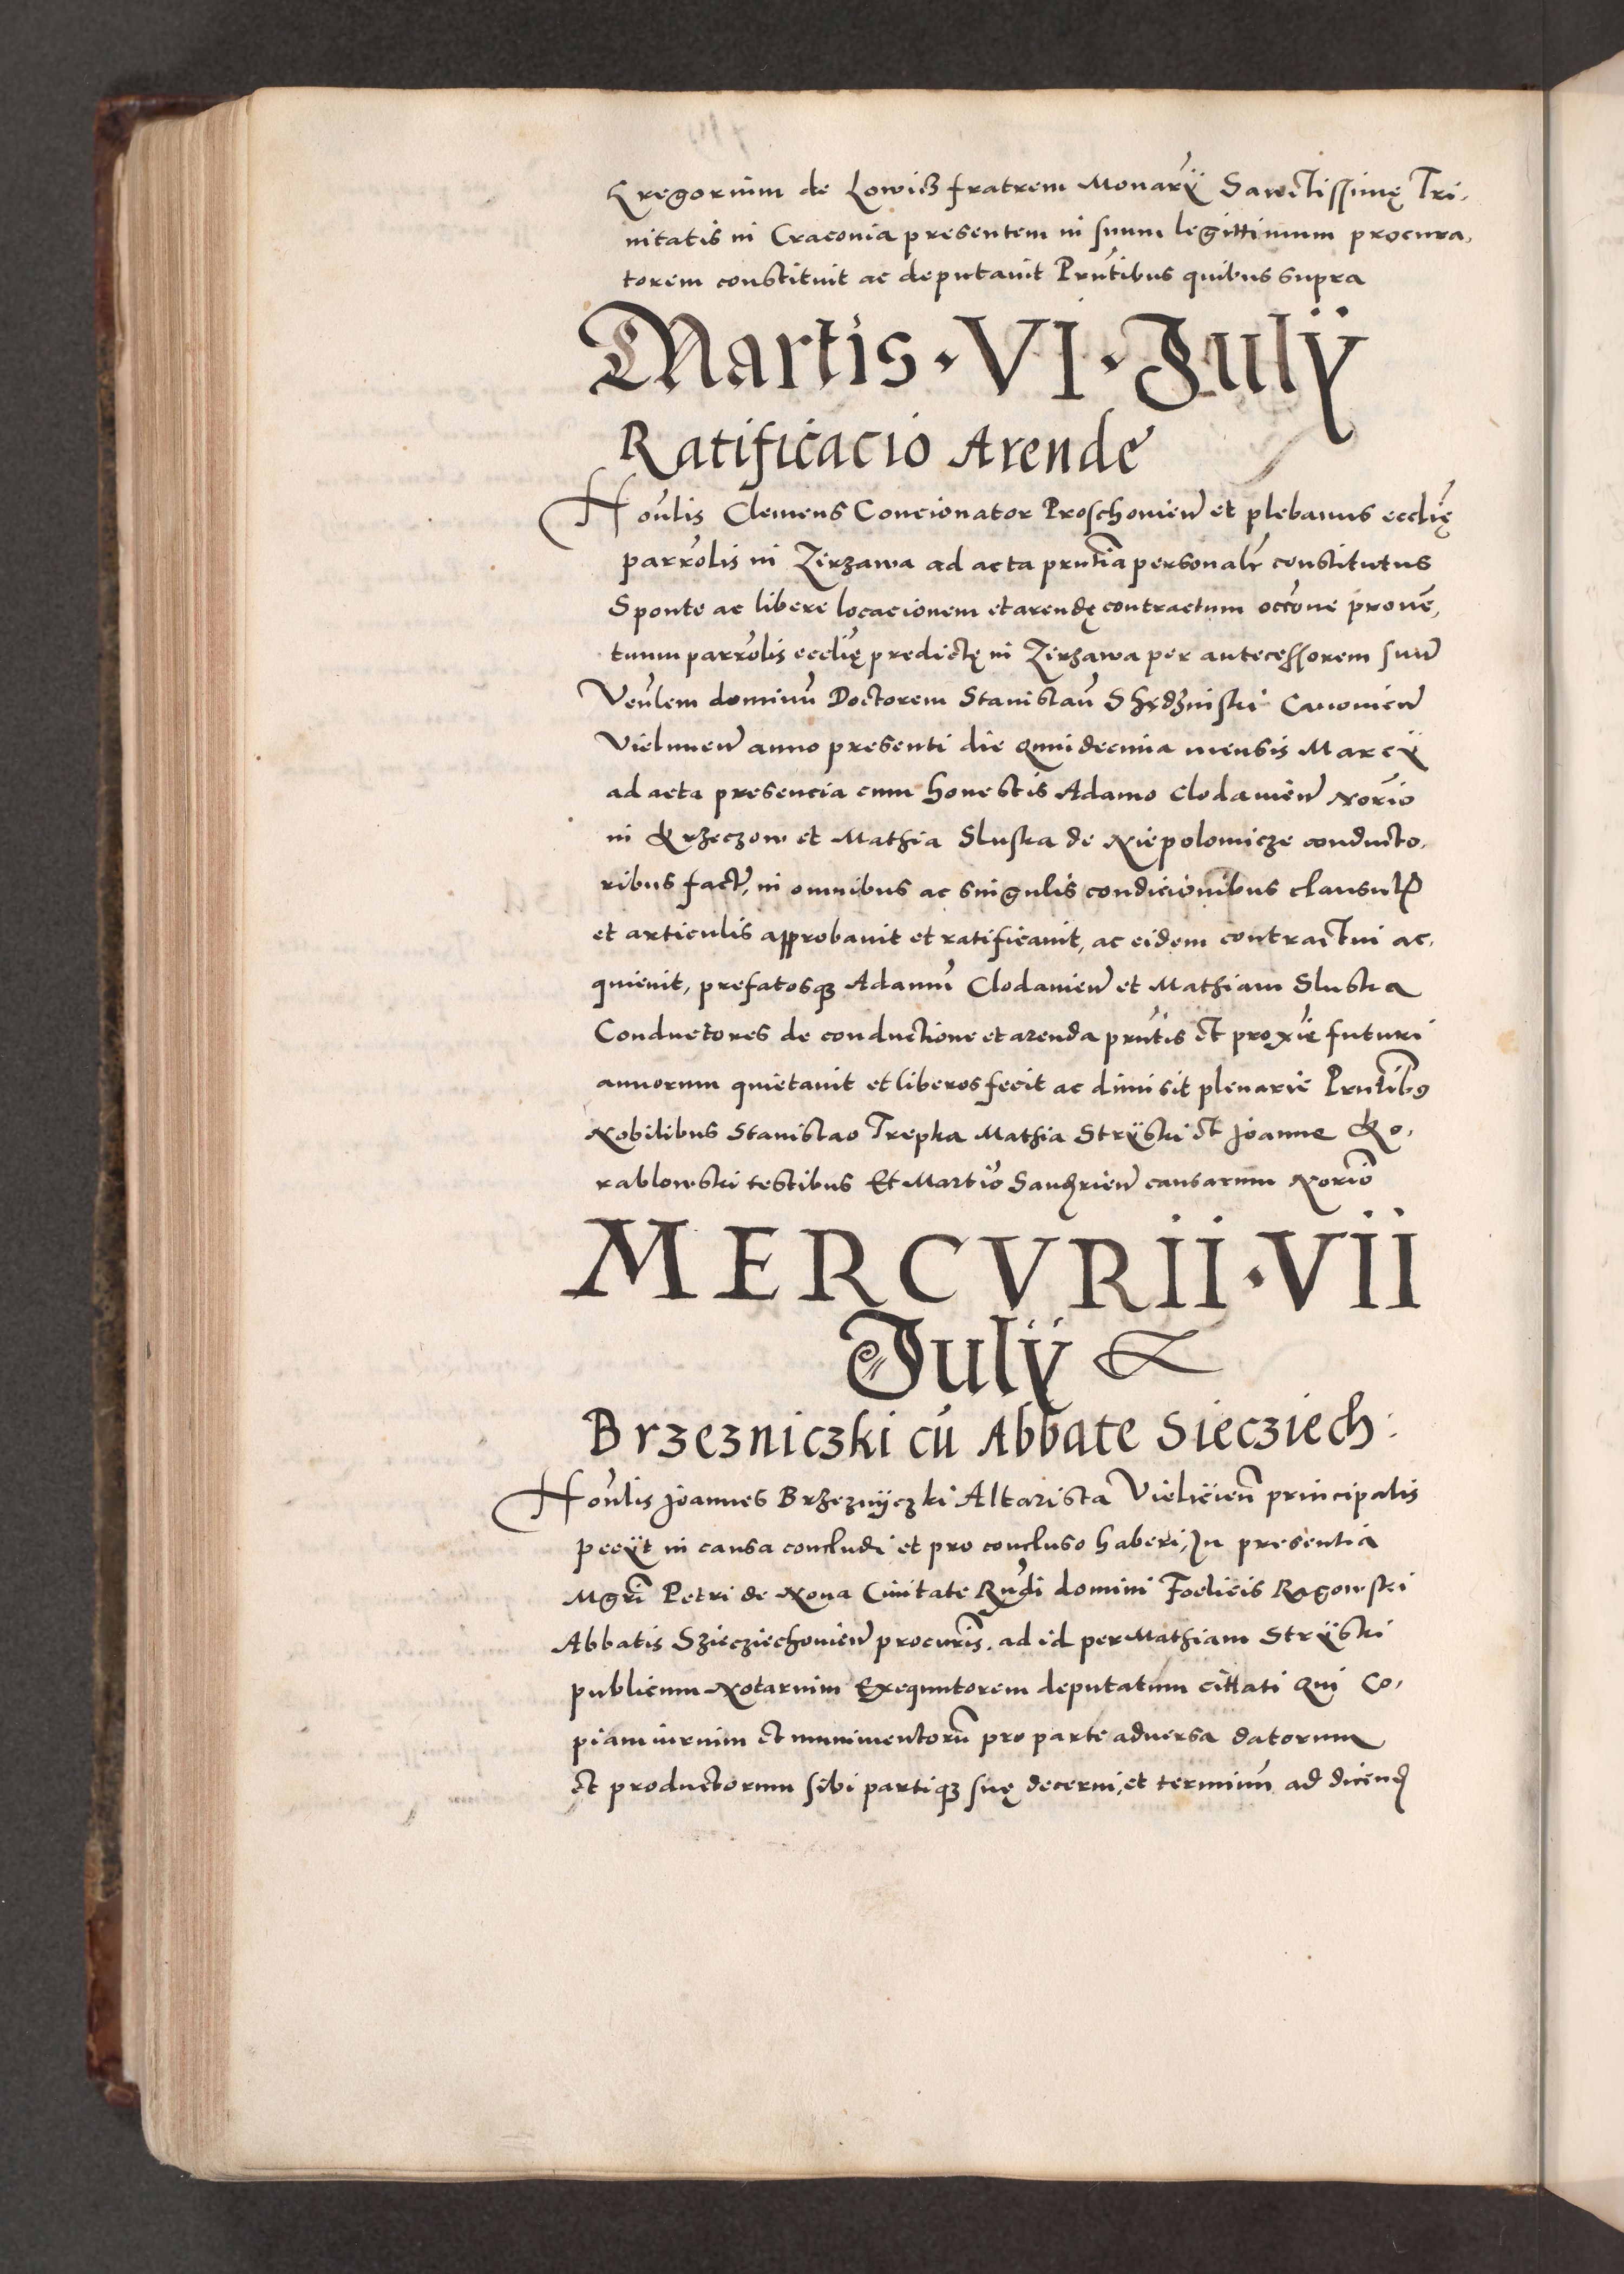 Gregorium de Lowicz fratrem Monarÿ Sanctissimę Tri-
nitatis in Craconia presentem in suum legittimum procura-
torem constituit ac deputauit Prntibus quibus supra
Martis · VI · Julÿ
Ratificacio Arende
Honlis Clemens Concionator Proschouien et plebanus ecclię
parrolis in Zirzawa ad acta prntia personalr constitutus
Sponte ac libere locacionem et arendę contractum occone prouen-
tuum parrolis ecclię predictę in Zirzawa per antecessorem suum
Venlem dominu Doctorem Stanislau Canonicu
Vielunen anno presenti die quindecima mensis Marcÿ
ad acta presencia cum honestis Adamo Clodauien Norio
in Krzeczow et Mathia Sluska de Niepolomicze conducto-
ribus fact, in omnibus ac singulis condicionibus clausulis
et articulis approbauit et ratificauit, ac eidem contractui ac-
quieuit, prefatosq Adamu Clodauien et Mathiam Sluska
Conductores de conductione et arenda prntis et proxie futuri
annorum quietauit et liberos fecit ac dimisit plenarie Prntibus
Nobilibus Stanislao Trepka Mathia Strÿski et Joanne Ko-
rablowski testibus Et Martio causarum Norio
MERCVRII · VII
Julÿ
Brzezniczki cu Abbate Siecziech:
Honlis Joannes Brzeznÿczki Altarista Vielicien principalis
petÿt in causa concludi et pro concluso haberi, In presentia
Mgri Petri de Noua Ciuitate Rndi domini Foelicis Ragowski
Abbatis Sziecziechouien procuris. ad id per Mathiam Strÿski
publicum Notarium Exequutorem deputatum cittati Qui Co-
piam iurium et munimentoru pro parte aduersa datorum
et productorum sibi partiq suę decerni, et terminu ad dicend